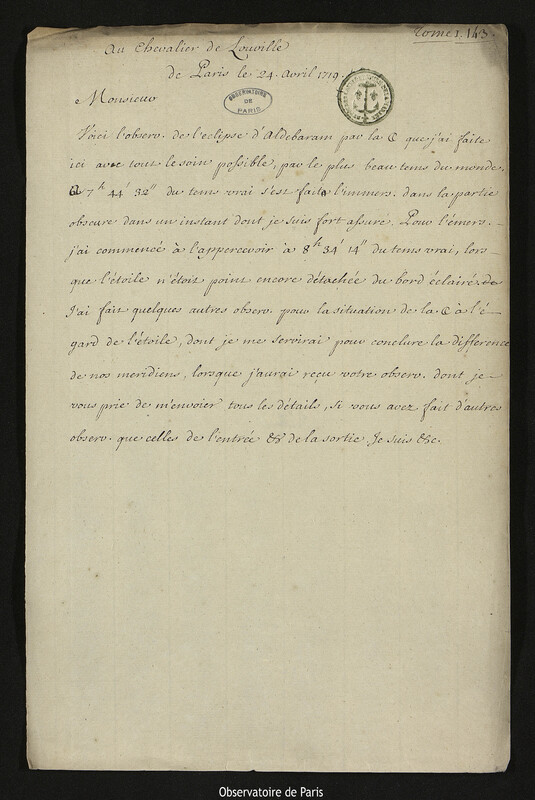 Tome 1. 143.
Au Chevalier de Louville
de Paris le 24. avril 1719.
OBSERVATOIRE
DE
PARIS
Monsieur
Voici l'observ. de l'eclipse d'Aldebaram par la ☾ que j'ai faite
ici avec tout le soin possible, par le plus beau tems du monde.
a 7h 44' 32" du tems vrai s'est faite l'immers. dans la partie
obscure dans un instant dont je suis fort assuré. Pour l'émers.
j'ai commencé à l'appercevoir à 8h 34' 14" du tems vrai, lors-
que l'étoile n'étoit point encore détachée du bord éclairé.
J'ai fait quelques autres observ. pour la situation de la ☾ à l'é-
gard de l'étoile, dont je me servirai pour conclure la difference
de nos meridiens, lorsque j'aurai reçu votre observ. dont je
vous prie de m'envoier tous les détails, si vous avez fait d'autres
observ. que celles de l'entrée & de la sortie. Je suis &c.
Observatoire de Paris